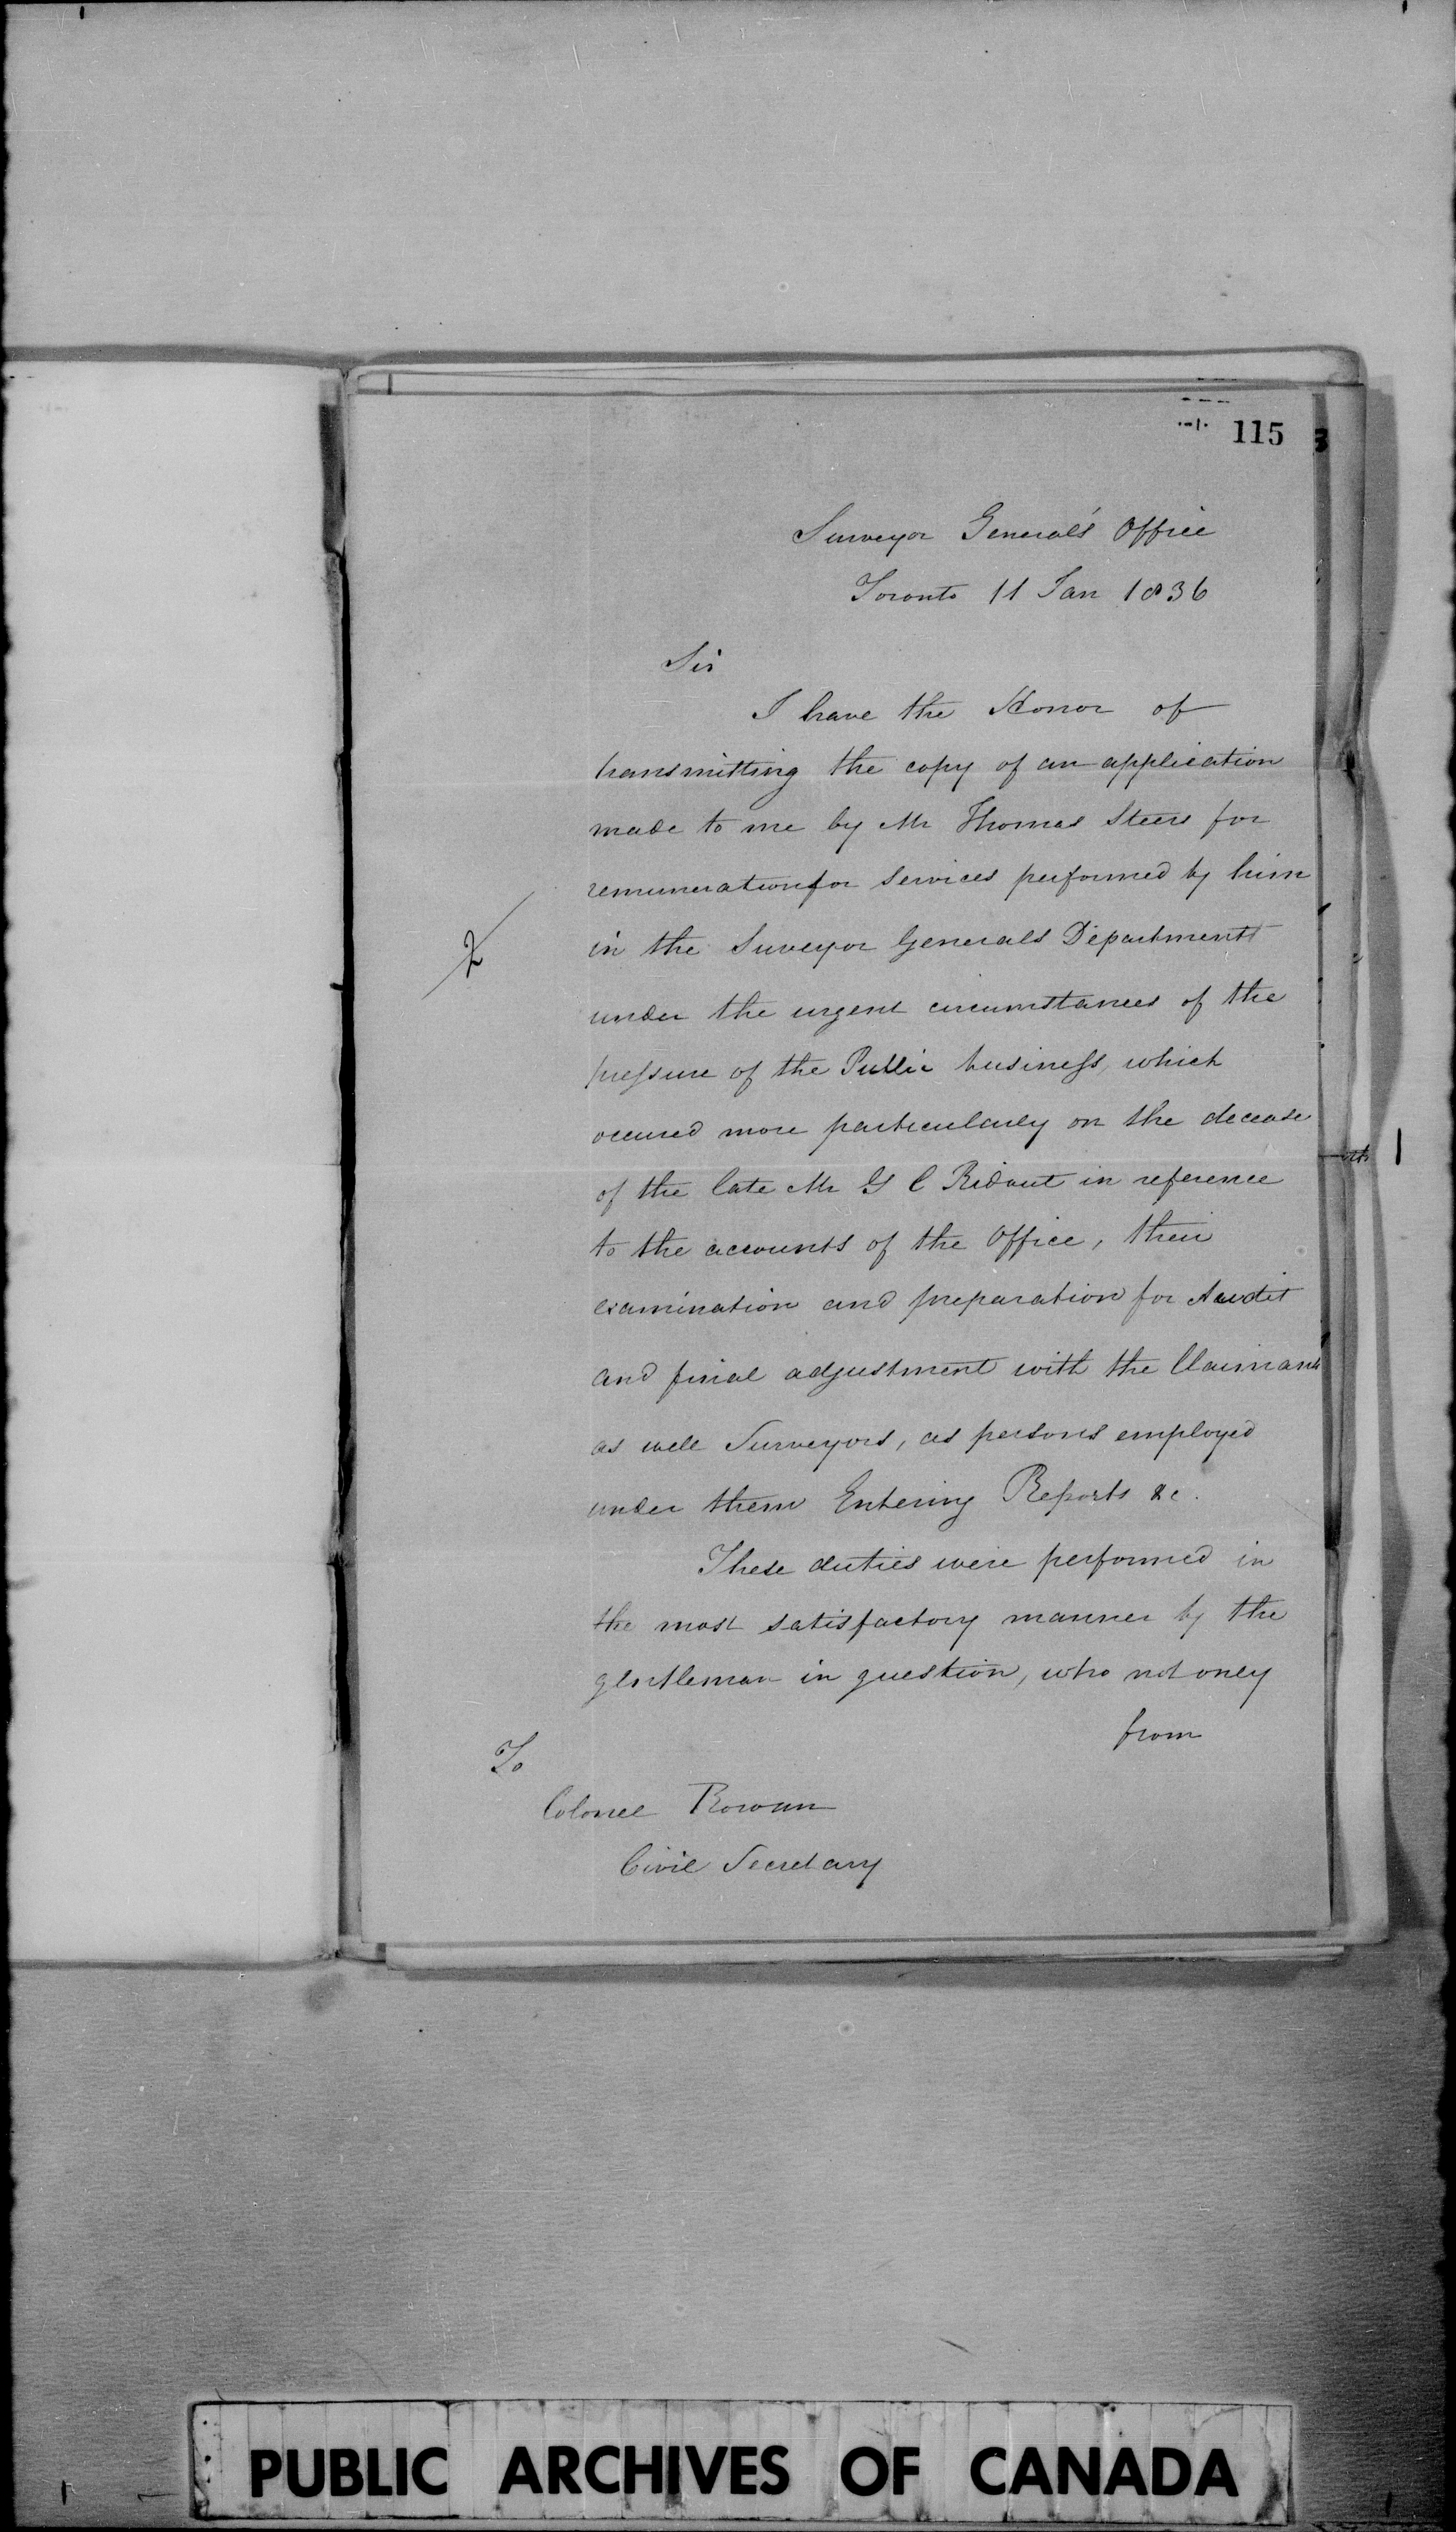 115
Surveyor General's Office
Toronto 11 Jan 1836
Sir
I have the Honor of
transmitting the copy of an application
made to me by Mr Thomas Steers for
remuneration for services performed by him
2
in the Suveyor Generals Department
under the urgent circumstances of the
pressure of the Public business, which
occured more particularly on the decease
of the late Mr G C Ridout in reference
to the accounts of the Office, their
examination and preparation for Audit
and final adjustment with the Claimants
as well Surveyors, as persons employed
under them Entering Reports &c.
These duties were performed in
the most satisfactory manner by the
gentleman in question, who not only
from
To
Colonel Rowan
Civil Secretary
PUBLIC ARCHIVES OF CANADA